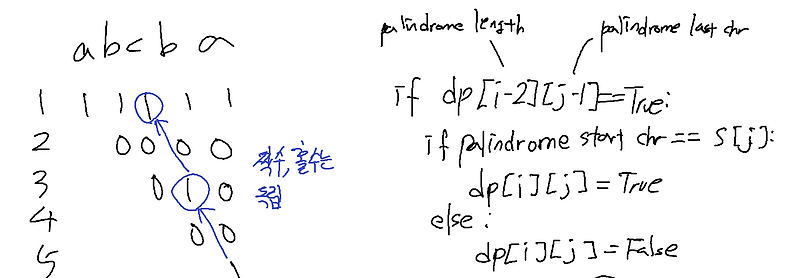 a b c b a
1 1 1 1 1 1
2 0 0 0 0
3 0 1 0
4 0 0
5
짝수, 홀수는
독립
palindrome length
palindrome last chr
if dp[i-2][j-1]==True:
if palindrome start chr == S[j]:
dp[i][j] = True
else :
dp[i][j] = False